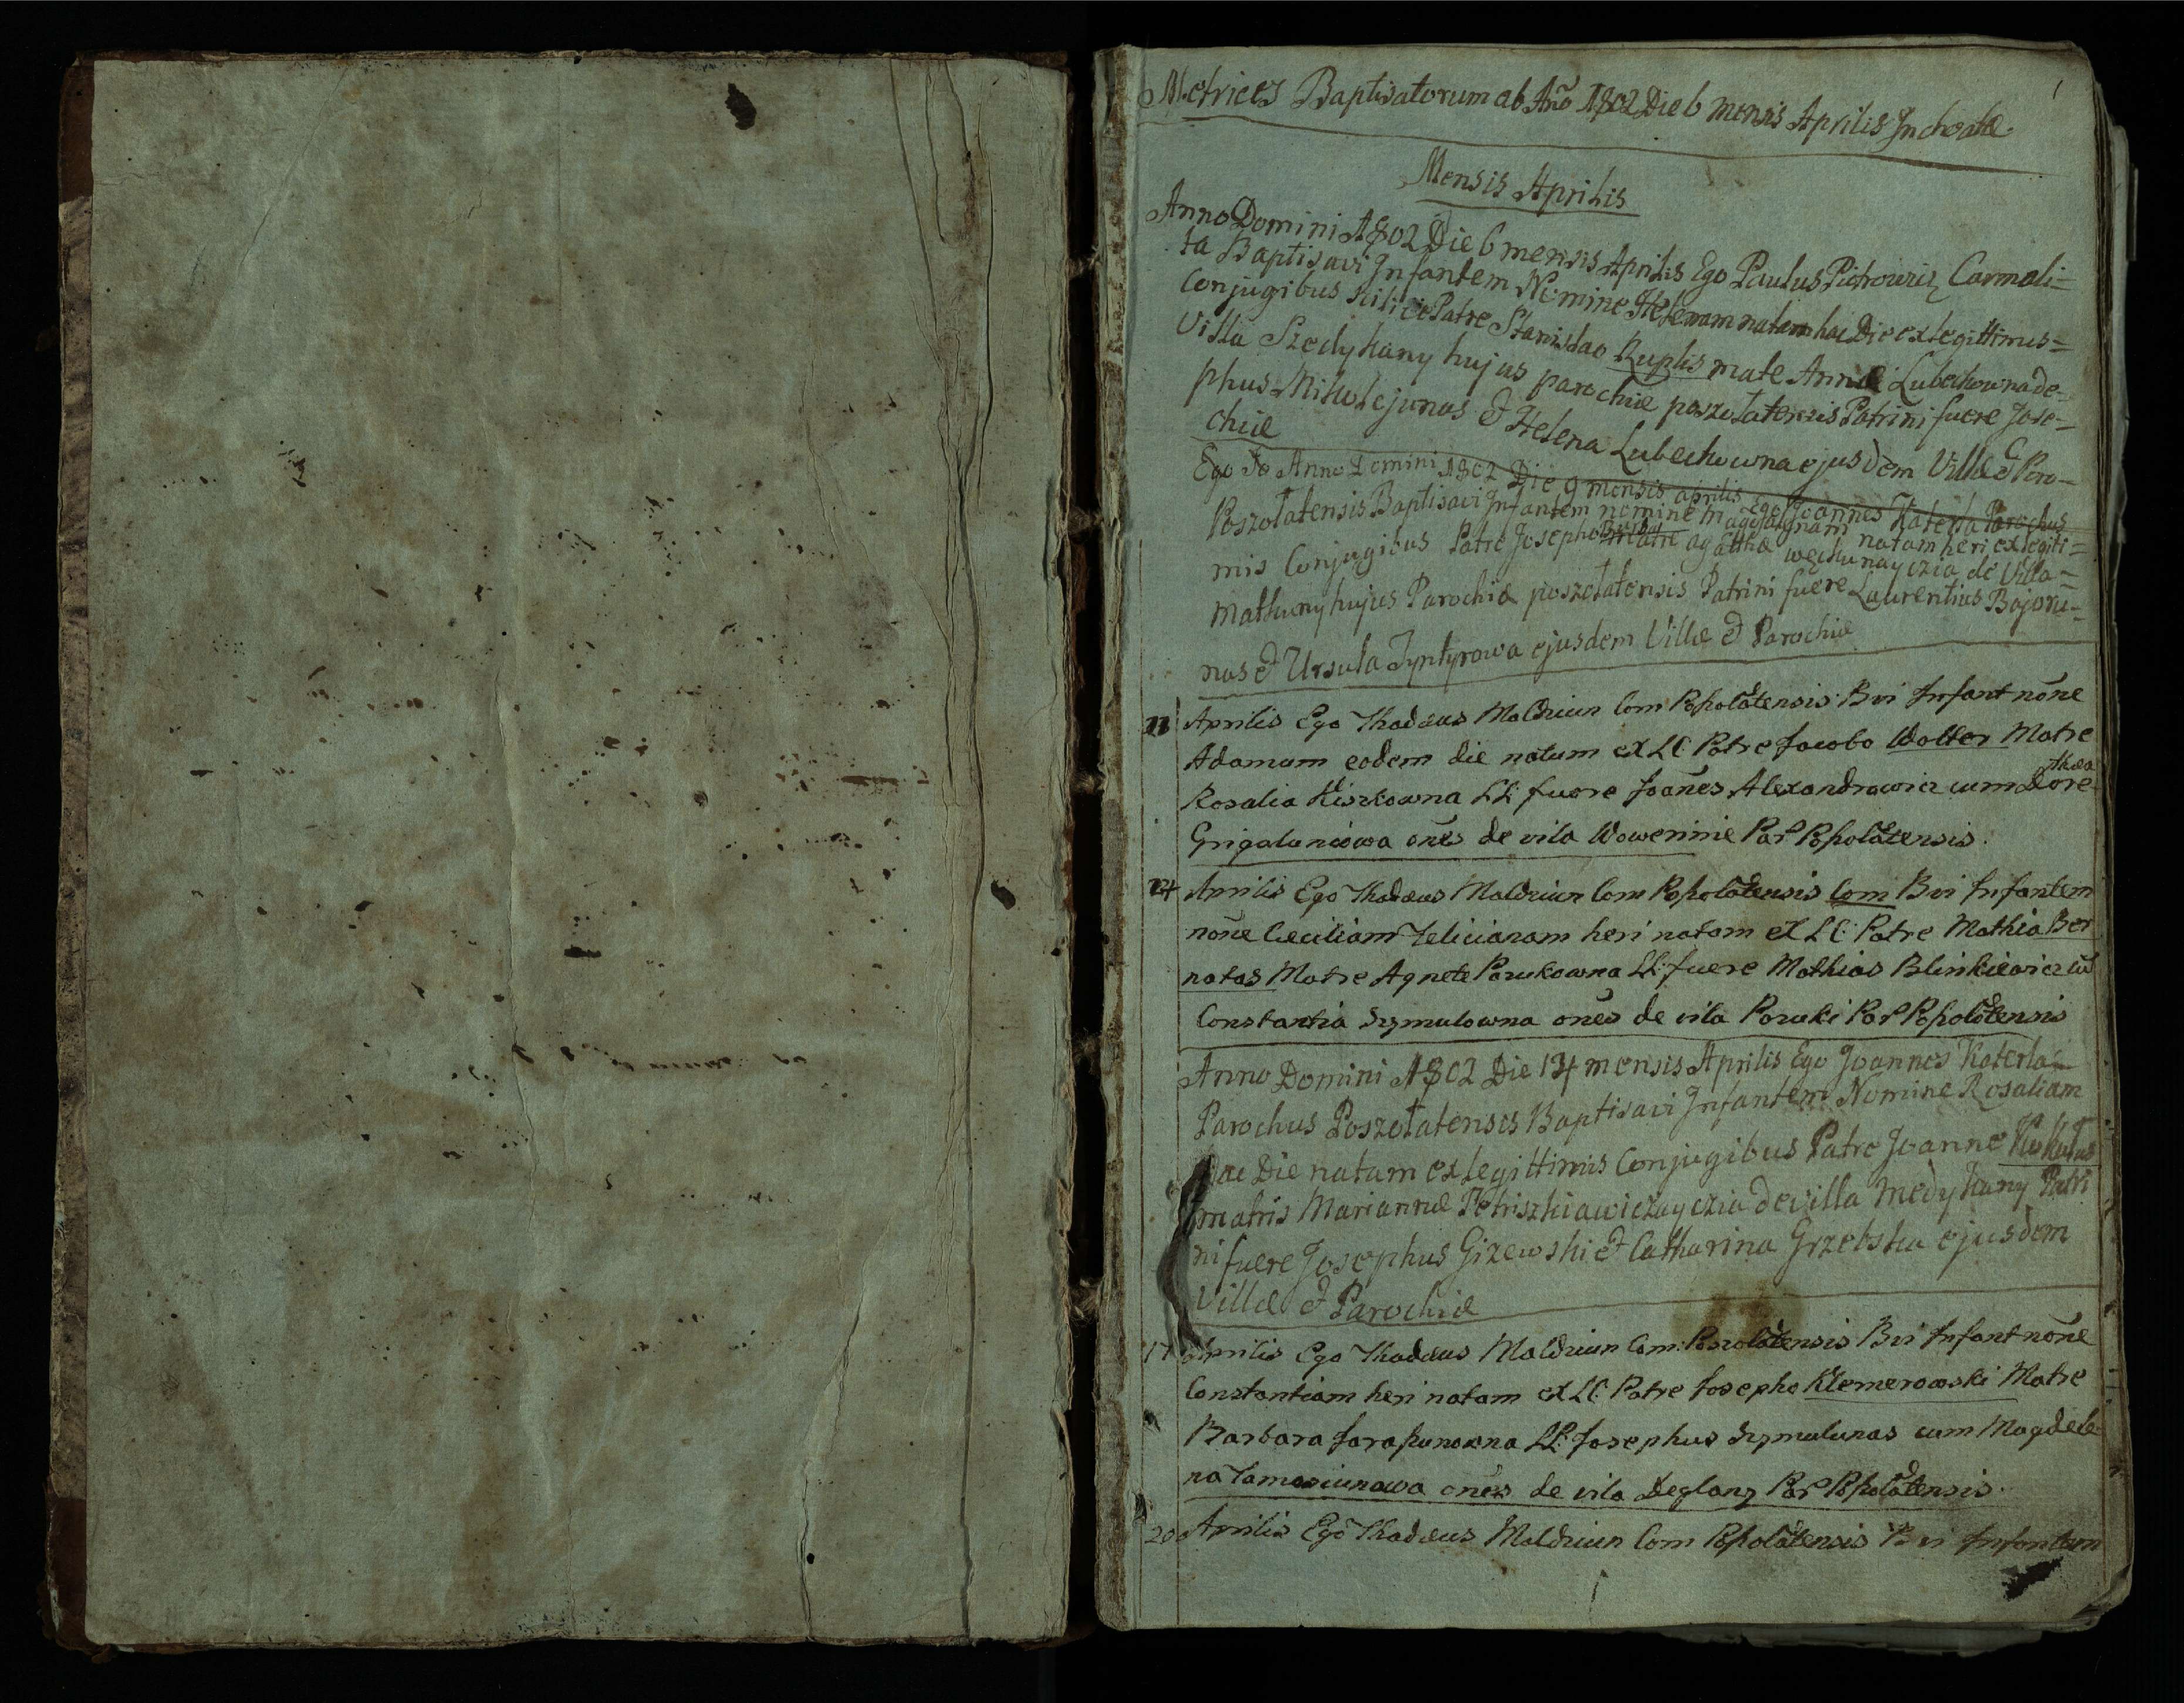 1
Metrices Baptisatorum ab Año 1802 Die 6 mensis Aprilis Inchoatæ
Mensis Aprilis
Anno Domini 1802 Die 6 mensis Aprilis Ego Paulus Piotrowicz Carmeli=
ta Baptisavi Infantem Nomine Helenam natam hac Die ex legittimis=
Conjugibus Patre Stanislao Ruplis matre Anna Lubechowna de=
Villa Szedykany hujus parochiæ poszołatensis Patrini fuere Jose=
phus Mikolejunas et Helena Lubechowna ejusdem Villæ et Paro=
chiæ
Ego Jo Anno Domini 1802 Die 9 mensis aprilis Ego Joannes Katerla Parochus
Poszołatensis Baptisavi Infantem nomine magdalenam natam heri ex legiti=
mis Conjugibus Patre Josepho matre agattha de Villa=
Mathuny hujus Parochiæ poszołatensis Patrini fuere Laurentius Bojoru=
nas et Ursula Tyntyrowa ejusdem Villæ et Parochiæ
Aprilis Ego Thadæus Maldziun Com Popołatensis Bvi Infant nõne
Adamum eodem die natum ex LC Patre Jacobo Wolter Matre
Rosalia Kiszkowna LL fuere Joañes Alexandrowicz cum Dore
thæa
Grigaluniowa oñes de vila Wowerinie Par Popołatensis.
14 Aprilis Ego Thadæus Maldziun Com Popołatensis Com Bvi Infantem
nõne Cæciliam Felicianam heri natam ex LC Patre Mathia Ber
natas Matre Agnete Parukowna LL fuere Mathias Blinkiewicz cũ
Constantia Szymulowna oñes de vila Poruki Par Popołatensis
Anno Domini 1802 Die 14 mensis Aprilis Ego Joannes Katerla
Parochus Poszołatensis Baptisavi Infantem Nomine Rosaliam
hac Die natam ex legittimis Conjugibus Patre Joanne Kukutus
matris Mariannæ Petriszkiawiczayczia de villa Medykany Patri
ni fuere Josephus Gizewski et Catharina Grzebska ejusdem
Villæ et Parochiæ
17 Aprilis Ego Thadæus Maldziun Com: Poszołatensis Bvi Infant nõne
Constantiam heri natam ex LC Patre Josepho Klemerowski Matre
Barbara Jarapunowna LL: Josephus Szymulunas cum Magdale
na Tamasiunowa oñes de vila Deglany Par Popołatensis.
20 Aprilis Ego Thadæus Maldziun Com Popołatensis Bvi Infantem